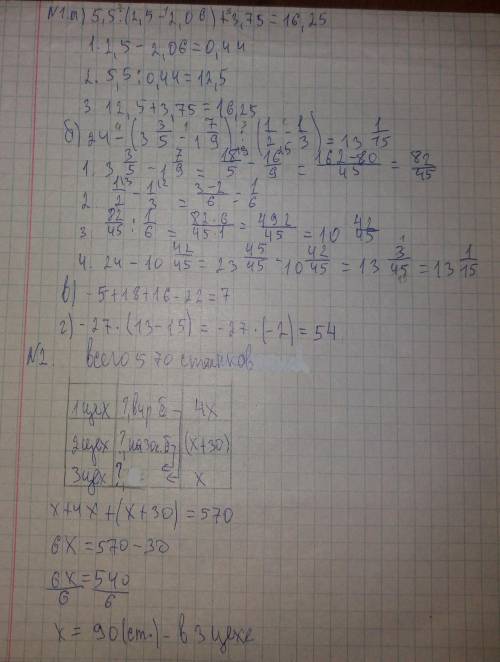 N1. а) 5,5:(2,5-2,06)+3,75=16,25
1. 2,5-2,06=0,44
2. 5,5:0,44=12,5
3. 12,5+3,75=16,25
б) 24-(3 3/5-1 7/9):(1/2-1/3)=13 1/15
1. 3 3/5-1 7/9=18/5-16/9=162-80/45=82/45
2. 1/2-1/3=3-2/6=1/6
3. 82/45:1/6=82·6/45·1=492/45=10 42/45
4. 24-10 42/45=23 45/45-10 42/45=13 3/45=13 1/15
в) -5+18+16-22=7
г) -27·(13-15)=-27·(-2)=54
N2. всего 570 станков
1 цех ?, в 4х
2 цех ? на 30 ст. б (х+30)
3 цех ? х
х+4х+(х+30)=570
6х=570-30
6х/6=540/6
х=90(ст.)-в 3 цехе